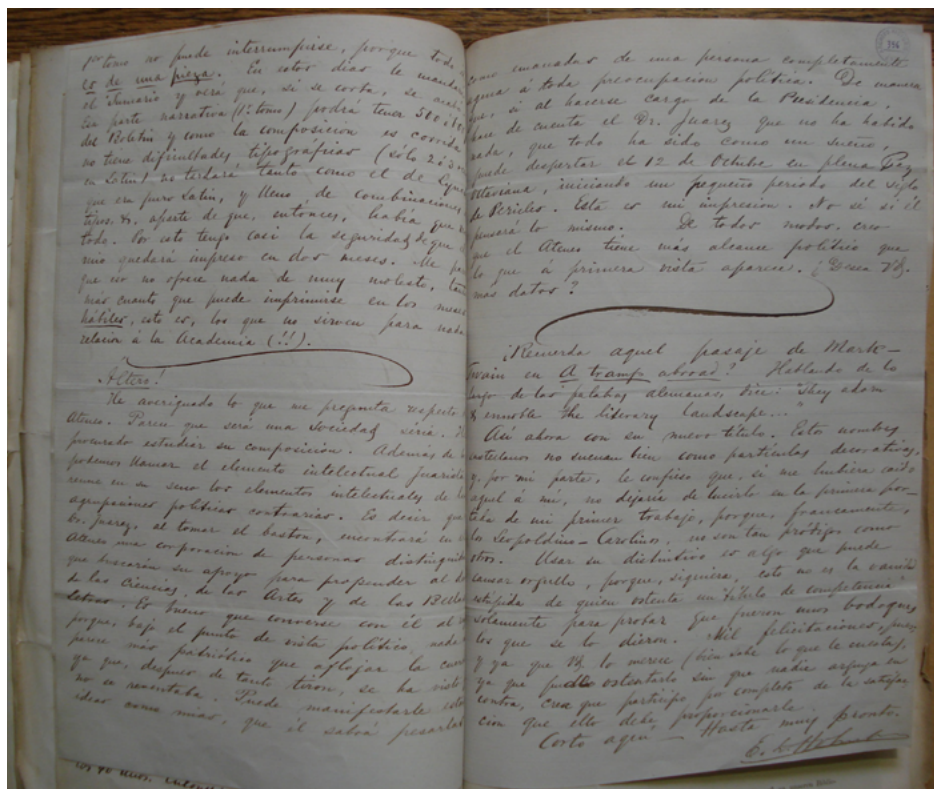 1er tomo no puede interrumpirse, porque todo
es de una pieza. En estos días le mandaré
el Sumario y verá que, si se corta, se
Esa parte narrativa (1er tomo) podrá tener 500
del Boletín y como la composición es corrida
no tiene dificultades tipográficas (sólo 2 ó 3
en Latín) no tardará tanto como el de
que era puro Latín, y lleno de combinaciones
tipos, &, aparte de que, entonces, había que
todo. Por esto tengo casi la seguridad de que
mio quedará impreso en dos meses. Me
que eso no ofrece nada de muy molesto,
más cuanto que puede imprimirse en los meses
hábiles, esto es, los que no sirven para nada
relación á la Academia (!!).
Altero!
He averiguado lo que me pregunta respecto
Ateneo. Parece que será una Sociedad séria.
procurado estudiar su composición. Además de
podemos llamar el elemento intelectual Juarista
reune en su seno los elementos intelectuales de
agrupaciones políticas contrarias. Es decir que
Dr. Juarez, al tomar el baston, encontrará en
Ateneo una corporación de personas
que buscarán su apoyo para propender al
de las Ciencias, de las Artes y de las Bellas
Letras. Es bueno que converse con él al
porque, bajo el punto de vista político, nada
parece más patriótico que aflojar la
ya que, despues de tanto tiron, se ha visto
no se reventaba. Puede manifestarle estas
ideas como mias, que él sabrá pesarlas
394
como emanadas de una persona completamente
agena á toda preocupacion política. De manera
que, si al hacerse cargo de la Presidencia,
hace de cuenta el Dr. Juarez que no ha habido
nada, que todo ha sido como un sueño,
puede despertar el 12 de Octubre en plena Paz
Octaviana, iniciando un pequeño periodo del Siglo
de Pericles. Esta es mi impresion. No sé si él
pensará lo mismo. De todos modos, creo
que el Ateneo tiene más alcance político que
lo que á primera vista aparece. ¿Desea Vd.
más datos?
¿Recuerda aquel pasaje de Mark-
Twain en A tramp abroad? Hablando de lo
largo de las palabras alemanas, dice: "They adorn
& ennoble the literary landscape..."
Así ahora con su nuevo título. Estos nombres
castellanos no suenan bien como partículas decorativas,
y, por mi parte, le confieso que, si me hubiera caido
aquel á mí, no dejaría de lucirlo en la primera por-
tada de mi primer trabajo, porque, francamente,
los Leopoldino-Carolinos, no son tan pródigos como
otros. Usar su distintivo es algo que puede
causar orgullo, porque, siquiera, esto no es la vanidad
estúpida de quien ostenta un título de competencia
solamente para probar que fueron unos bodoques
los que se lo dieron. Mil felicitaciones, pues,
y ya que Vd. lo merece (bien sabe lo que le cuesta),
ya que puede ostentarlo sin que nadie arguya en
contra, crea que participo por completo de la satisfac-
cion que ello debe proporcionarle.
Corto aquí — Hasta muy pronto.
E. L. Holmberg